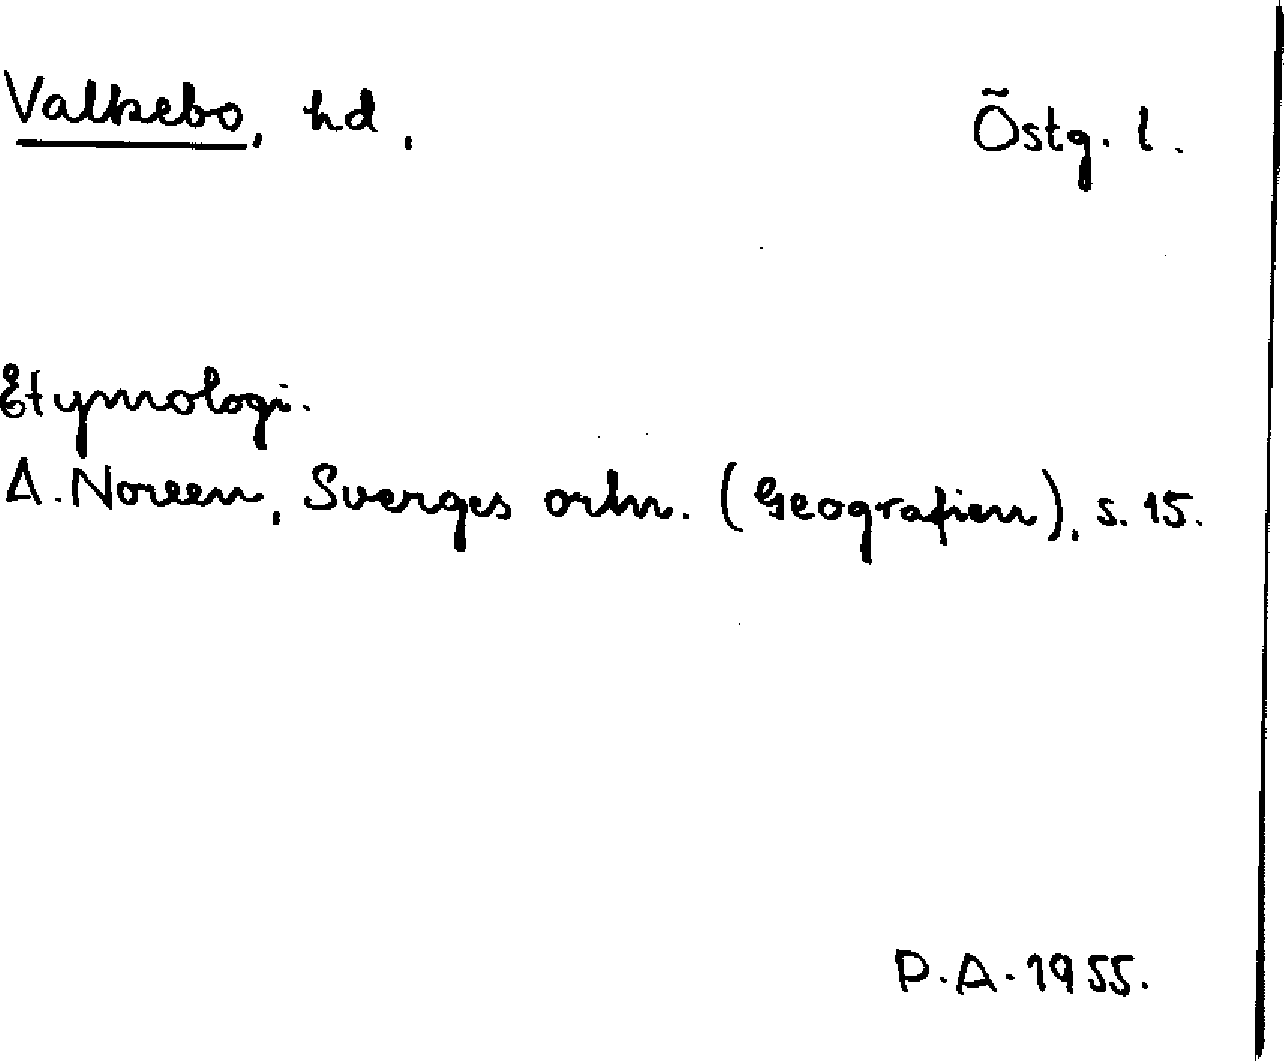 Valkebo, hd, Östg. l.
Etymologi.
A. Noreen, Sverges ortn. (Geografien), s. 15.
P.A. 1955.